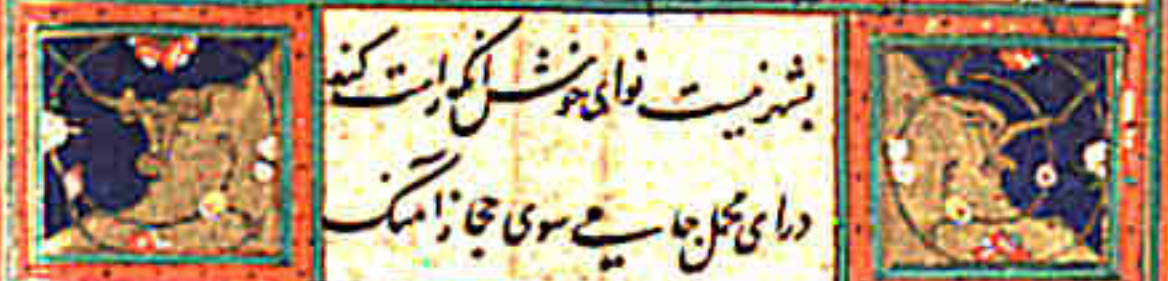 بشهر نیست نوای خوش انکو راست کند
درای محمل جامی سوی حجاز آهنگ